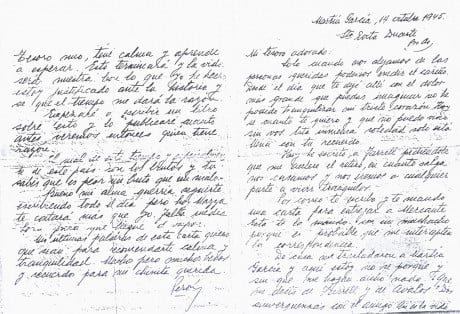 Martín García, 14 octubre 1945.
Sta Evita Duarte
Bs As.
Mi tesoro adorado:
Solo cuando nos alejamos de las
personas queridas podemos medir el cariño.
Desde el día que te dejé allí con el dolor
más grande que puedas imaginar no he
podido tranquilizar mi triste corazón. Hoy
sé cuanto te quiero y que no puedo vivir
sin vos. Esta inmensa soledad solo está
llena con tu recuerdo.
Hoy he escrito a Farrell pidiéndole
que me acelere el retiro, en cuanto salgo
nos casamos y nos vamos a cualquier
parte a vivir tranquilos.
Por correo te escribo y te mando
una carta para entregar a Mercante
Esto te lo mando con un muchacho
porque es probable que me intercepten
la correspondencia.
De casa me trasladaron a Martín
García y aquí estoy no sé por qué y
sin que me hayan dicho nada. ¿Que
me decís de Farrell y de Avalos? Dos
sinvergüenzas con el amigo. Así es la vida
Tesoro mio, tené calma y aprende
a esperar. Esto terminará y la vida
será nuestra. Con lo que yo he hecho
estoy justificado ante la historia y
sé que el tiempo me dará la razón.
Empezaré a escribir un libro
sobre esto y lo publicaré cuanto
antes, veremos entonces quien tiene
razón.
El mal de este tiempo y especialmen-
te de este país son los brutos y tu
sabes que es peor un bruto que un malo.
Bueno mi alma querría seguirte
escribiendo todo el día pero hoy Mazza
te contará más que yo. falta media
hora para que llegue el vapor.
Mis últimas palabras de esta carta quiero
que sean para recomendarte calma y
tranquilidad. Muchos pero muchos besos
y recuerdos para mi chinita querida
Perón